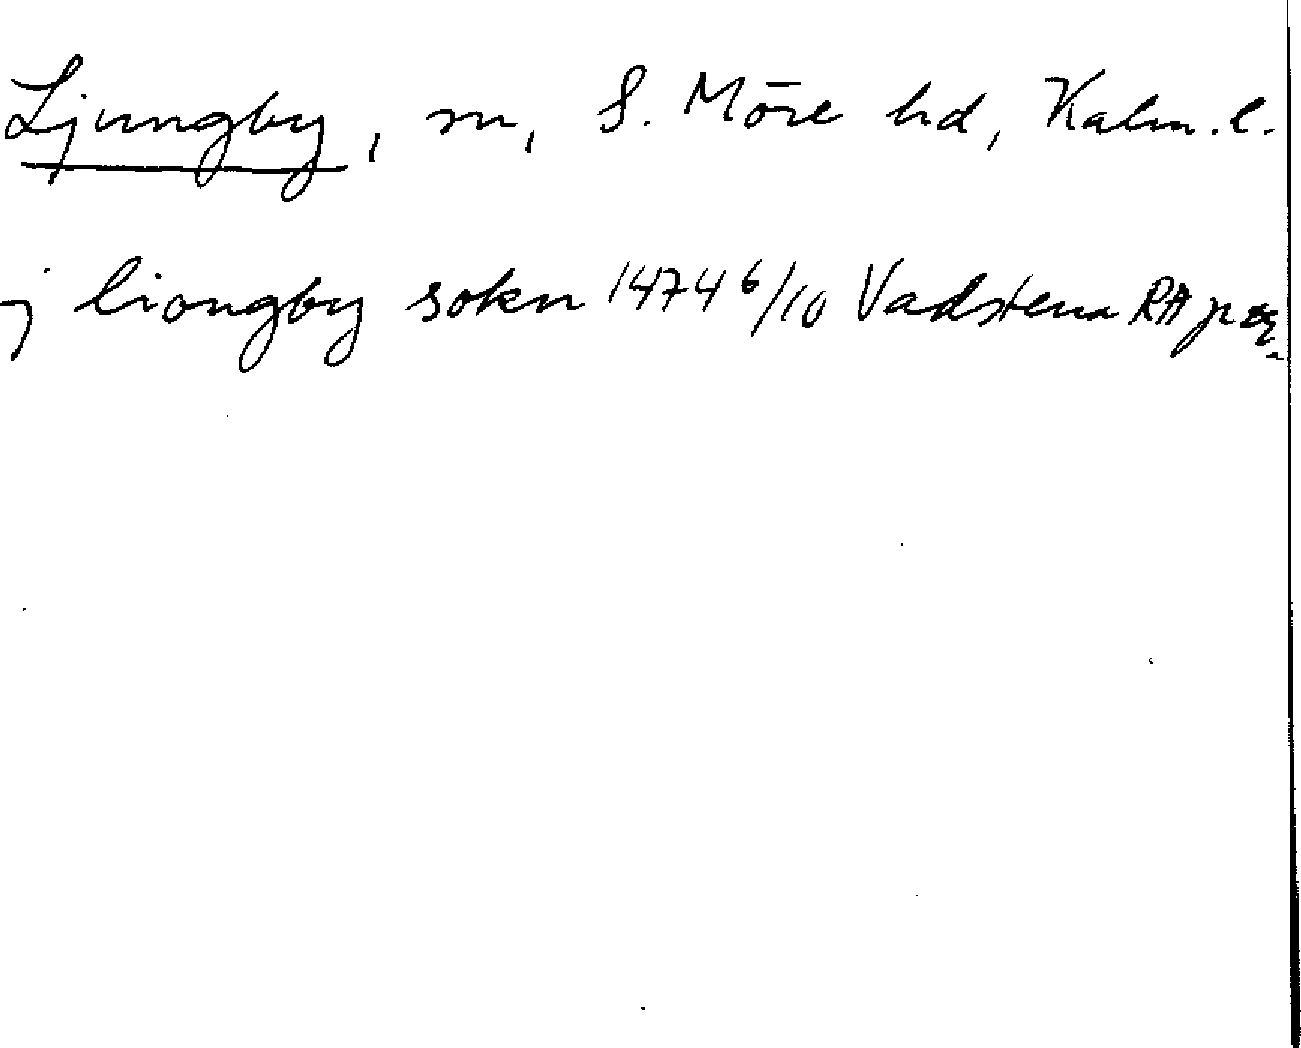 Ljungby, sn, S. Möre hd, Kalm. l.
j liongby sokn 1474 6/10 Vadstena RA p